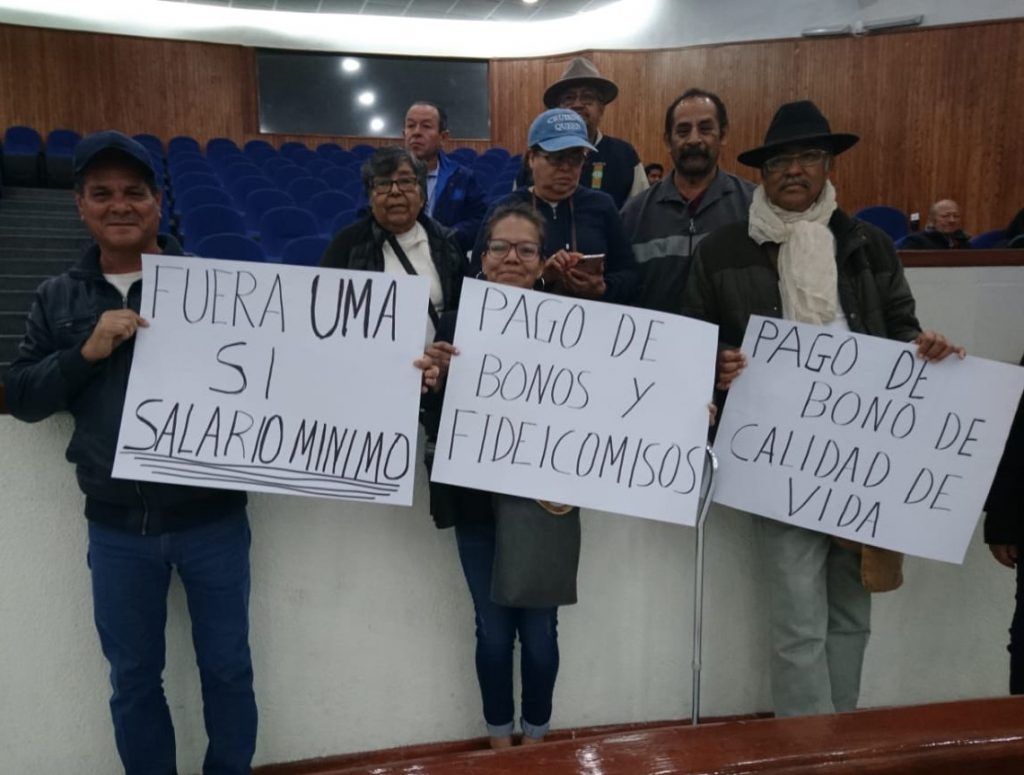 CRUISING
QUEEN
FUERA UMA
SI
SALARIO MINIMO
PAGO DE
BONOS Y
FIDEICOMISOS
PAGO DE
BONO DE
CALIDAD DE
VIDA